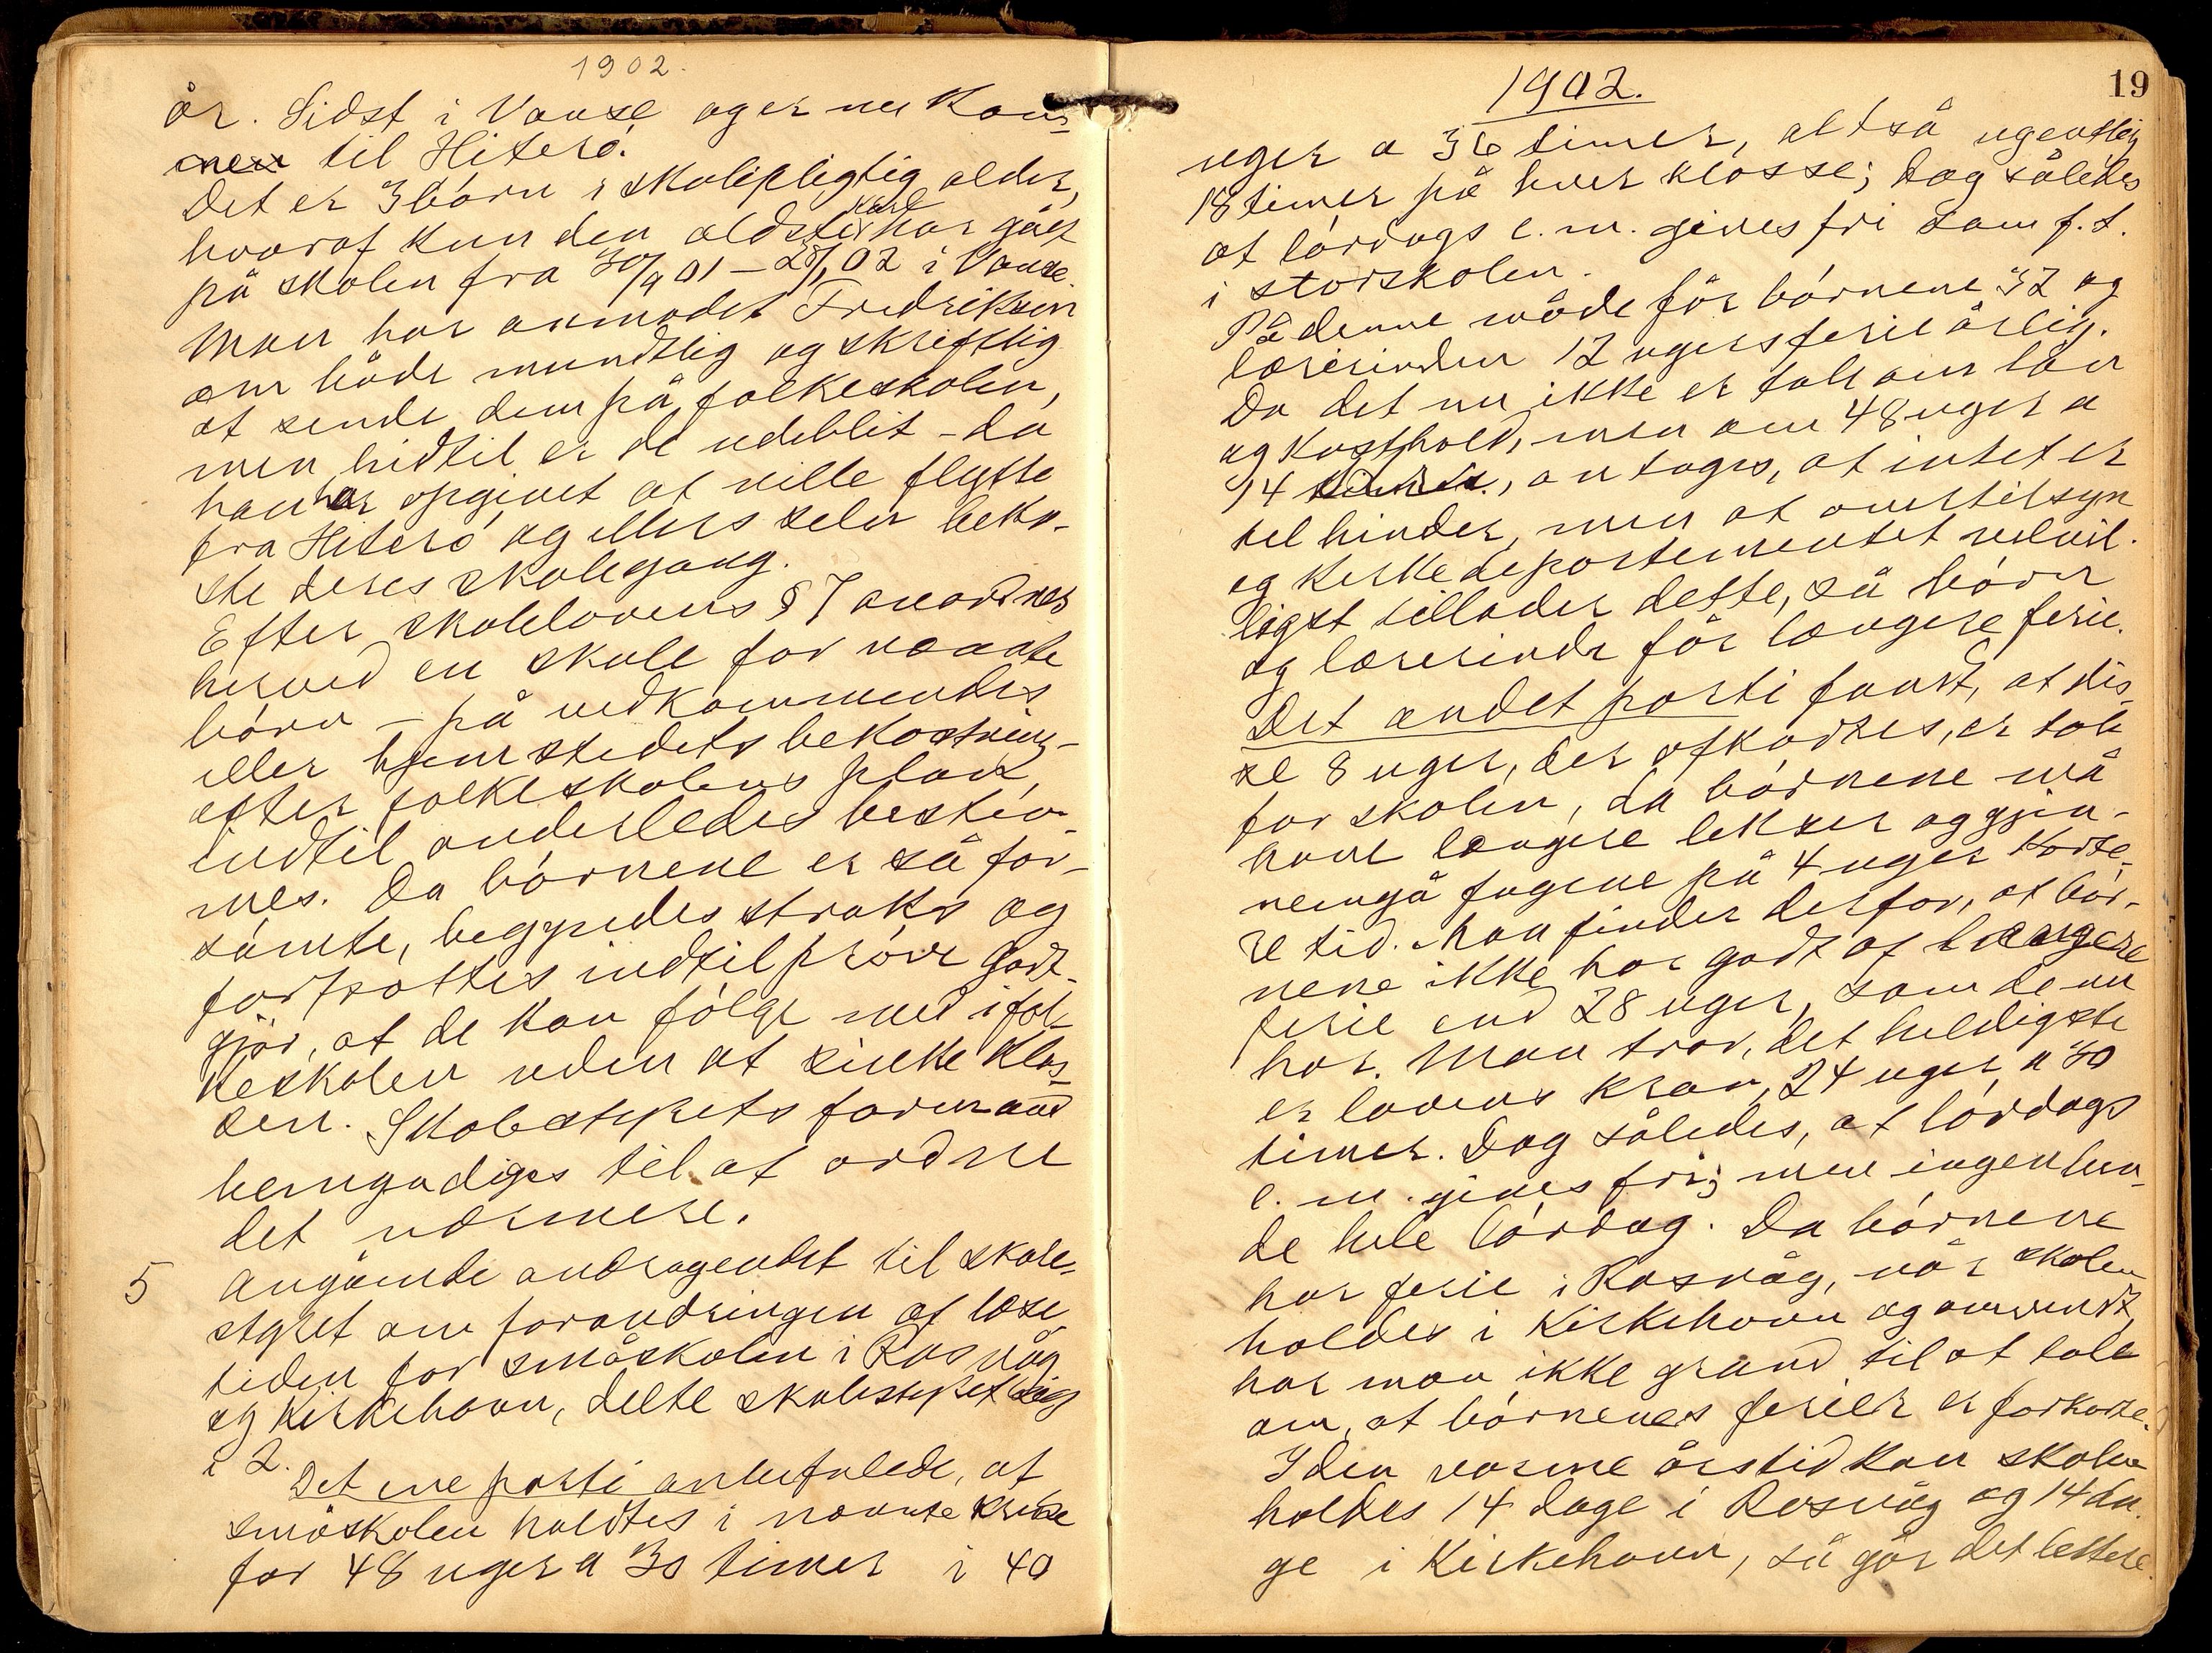 1902.
år. Sidst i Vanse og er nu Kom-
men til Hiterö.
Det er 3 börn i skolepligtig alder,
hvoraf kun den ældste Karl har gåt
på skolen fra 30/9 01 - 28/1 02 i Vanse.
Man har anmodet Fredriksen
om både mundtlig og skriftlig
at sende dem på folkeskolen,
men hidtil er de udeblit - da
han har opgivet at ville flytte
fra Hiterö og ellers selv beko-
ste deres skolegang.
Efter skolelovens § 7 anordnes
herved en skole for nævnte
börn - på vedkommendes
eller hjemstedets bekostning -
efter folkeskolens plan,
indtil anderledes bestem-
mes. Da börnene er så for-
sömte, begyndes straks og
fortsættes indtil pröve godt-
gjör, at de kan fölge med i fol-
keskolen uden at sinke klas-
sen. Skolestyrets formand
bemyndiges til at ordne
det nærmere.
5 Angående andragendet til skole-
styret om forandringen af læse-
tiden for småskolen i Rasvåg
og Kirkehavn, delte skolestyret sig
i 2.
Det ene parti anbefalede, at
småskolen holdtes i nævnte kredse
for 48 uger a 30 timer i 40
19
1902.
uger a 36 timer, altså ugentlig
18 timer på hver klasse; dog således
at lördags e. m. gives fri som f. t.
i storskolen.
På denne måde får börnene 32 og
lærerinden 12 ugers ferie årlig.
Da det nu ikke er tale om lön
og kosthold, men om 48 uger a
14 , antages, at intet er
til hinder, men at overtilsyn
og Kirkedepartementet velvil-
ligst tillader dette, så börn
og lærerinde får længere ferie.
Det andet parti fandt, at dis-
se 8 uger, der afkortes, er tab
for skolen, da börnene må
have længere lekser og gjen-
nemgå fagene på 4 uger korte-
re tid. Man finder derfor, at bör-
nene ikke har godt af længere
ferie end 28 uger, som de nu
har. Man tror, det heldigste
er lovens krav, 24 uger a 30
timer. Dog således, at lördags
e. m. gives fri; men ingenlun-
de hele lördag. Da börnene
har ferie i Rasvåg, når skolen
holdes i Kirkehavn og omvendt,
har man ikke grund til at tale
om, at börnenes ferier er forkorte.
I den varme årstid kan skolen
holdes 14 dage i Rasvåg og 14 da-
ge i Kirkehavn, så går det lettere.